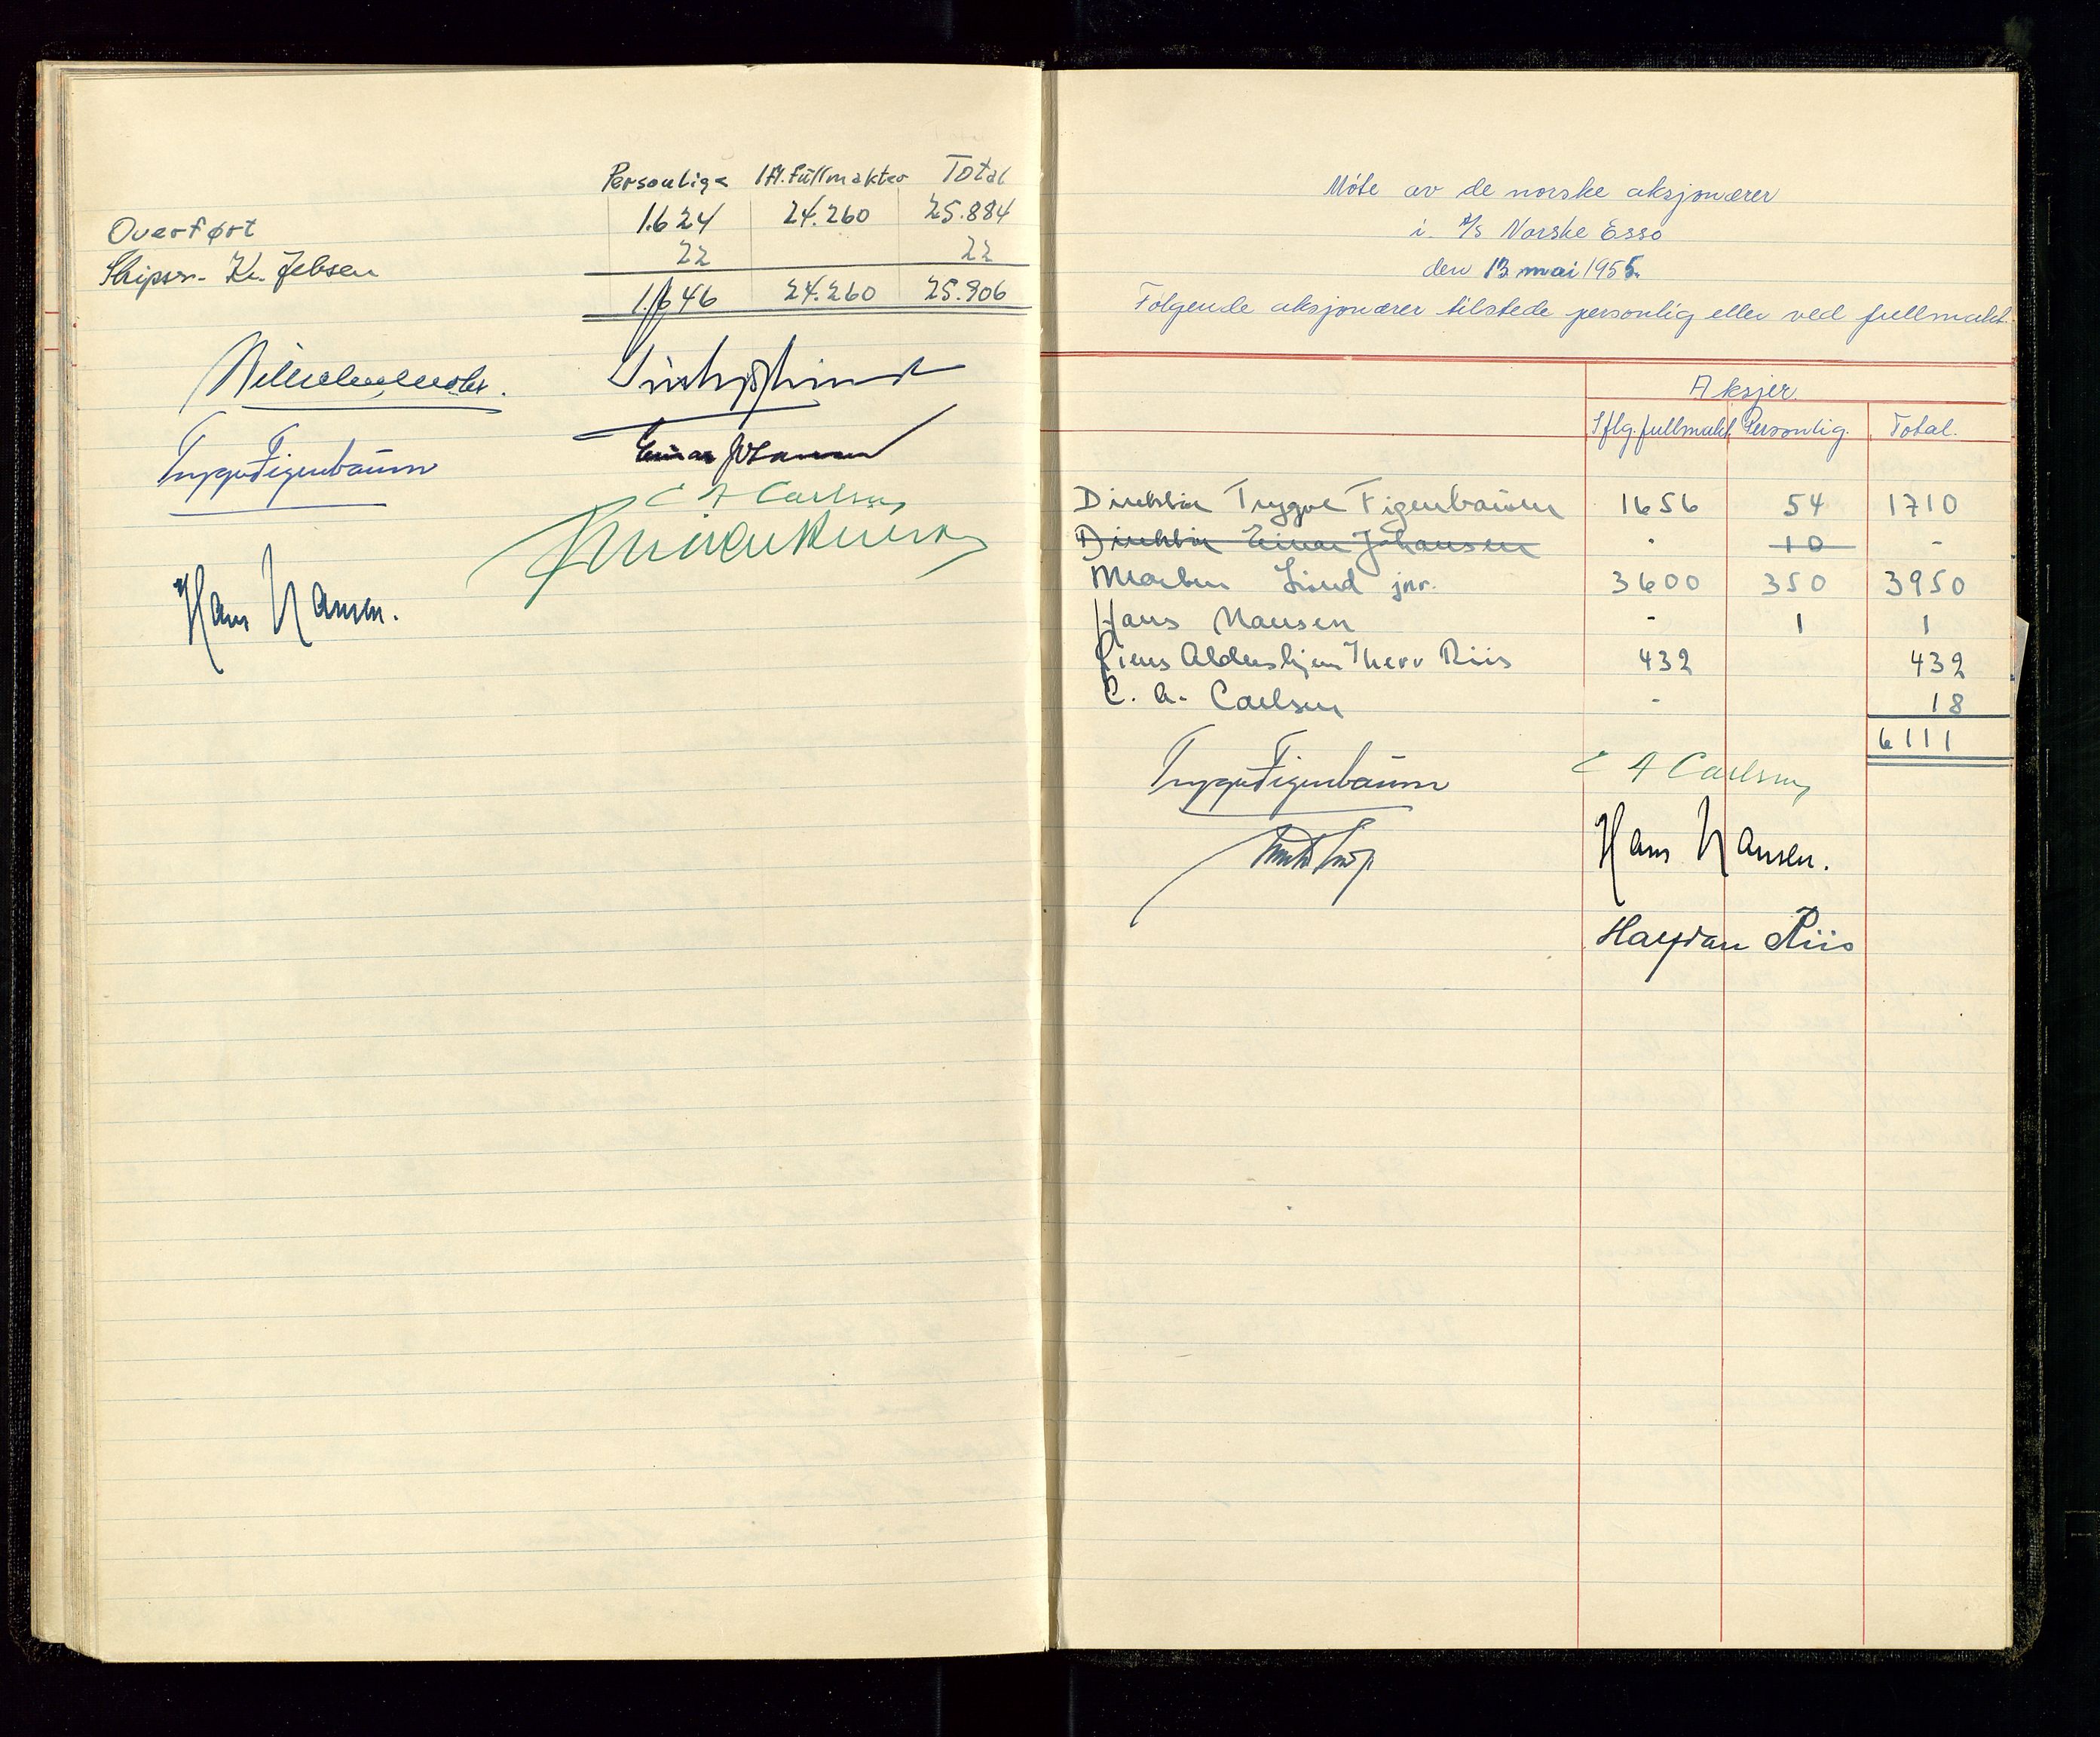 Personlige Ifl. fullmakter Total
Overført 1.624 24.260 25.884
Skipsr. Kr. Jebsen 22 22
1.646 24.260 25.906
Trygve Figenbaum
Einar Johansen
C A Carlsen
Hans Hansen.
Møte av de norske aksjonærer
i A/S Norske Esso
den 13 mai 1955.
Følgende aksjonærer tilstede personlig eller ved fullmakt.
Aksjer.
Iflg. fullmakt Personlig. Total.
Direktør Trygve Figenbaum 1656 54 1710
Direktør Einar Johansen - 10 -
Morten Lind jnr. 3600 350 3950
Hans Hansen - 1 1
Riis 432 432
C. A. Carlsen - 18
6111
Trygve Figenbaum
C A Carlsen
Hans Hansen.
Halfdan Riis